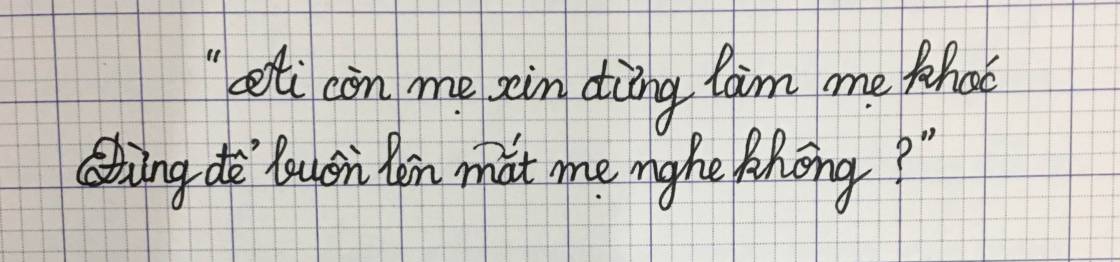 "Ai còn mẹ xin đừng làm mẹ khóc
Đừng để buồn lên mắt mẹ nghe không?"